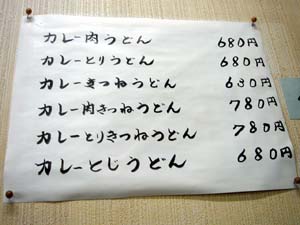 カレー肉うどん 680円
カレーとりうどん 680円
カレーきつねうどん 680円
カレー肉きつねうどん 780円
カレーとりきつねうどん 780円
カレーとじうどん 680円